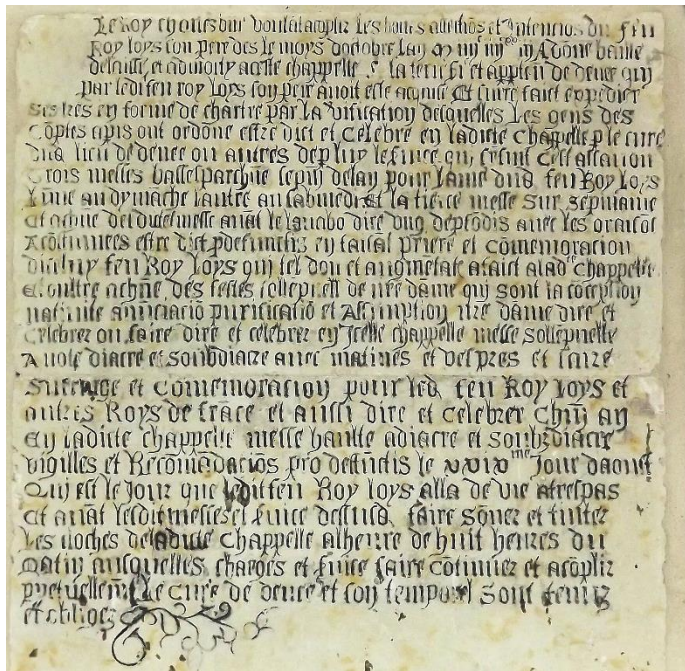 Le Roy Charles dnr voulāt acōplir les bōnes affectiōs et Intenciōs du feu
Roy loys son pere des le moys doctobre Lan m iiiiᶜ iiiiˣˣ iii A dōne baille
delaisse et admorty a ceste chappelle la terre fi et appten de denee qui
par ledit feu roy Loys son pere auoit este acquise Et luire faict expedier
Ses lr̄es en forme de chartre par la vification desquelles Les gens des
Cōptes a pis ont ordōne estre dict et Celebre en ladicte chappelle p le cure
dud lieu de denee ou autres de p luy le seruice qui sensuit Cest assauoir
Trois messes basses parchūe sepmˢ de lan pour lame dud feu Roy Loys
Lune au dymāche lautre au sabmedi Et la tierce messe Sur sepmaine
Et a chūe desdictes messe auāt le lauabo dire vng depfōdis auec les oraisōs
Acōstumees estre dict p defunctis en faisāt priere et cōmemoracion
dicelluy feu Roy Loys qui tel don et augmētaт a faict a lad chappelle
Et oultre a chūe des festes sollepnelz de nr̄e dame qui sont la cōcepcion
natiuite anūciaciō purificatiō et Assumption nr̄e dame dire et
Celebrer ou faire dire et celebrer en Icelle chappelle messe sollepnelle
A uole diacre et Soubdiacre auec matines et vespres et faire
Suffraige et Cōmemoracion pour led feu Roy loys et
autres Roys de frāce et aussi dire et celebrer Chūn an
En ladicte chappelle messe haulte a diacre et Soubzdiacre
vigilles et Recōmādaciōs pro deffūctis le xxixᵐᵉ Jour daoust
Qui est le Jour que ledit feu Roy loys alla de vie a trespas
Et auāt lesdit messes et suice dessusd faire Sōner et tinter
Les cloches de ladicte Chappelle a lheure de huit heures du
Matin ausquelles charges et suice faire cōtinuer et acōplir
ppetuellem̄t Le cure de denee et son temporel Sont tenuz
et obligez